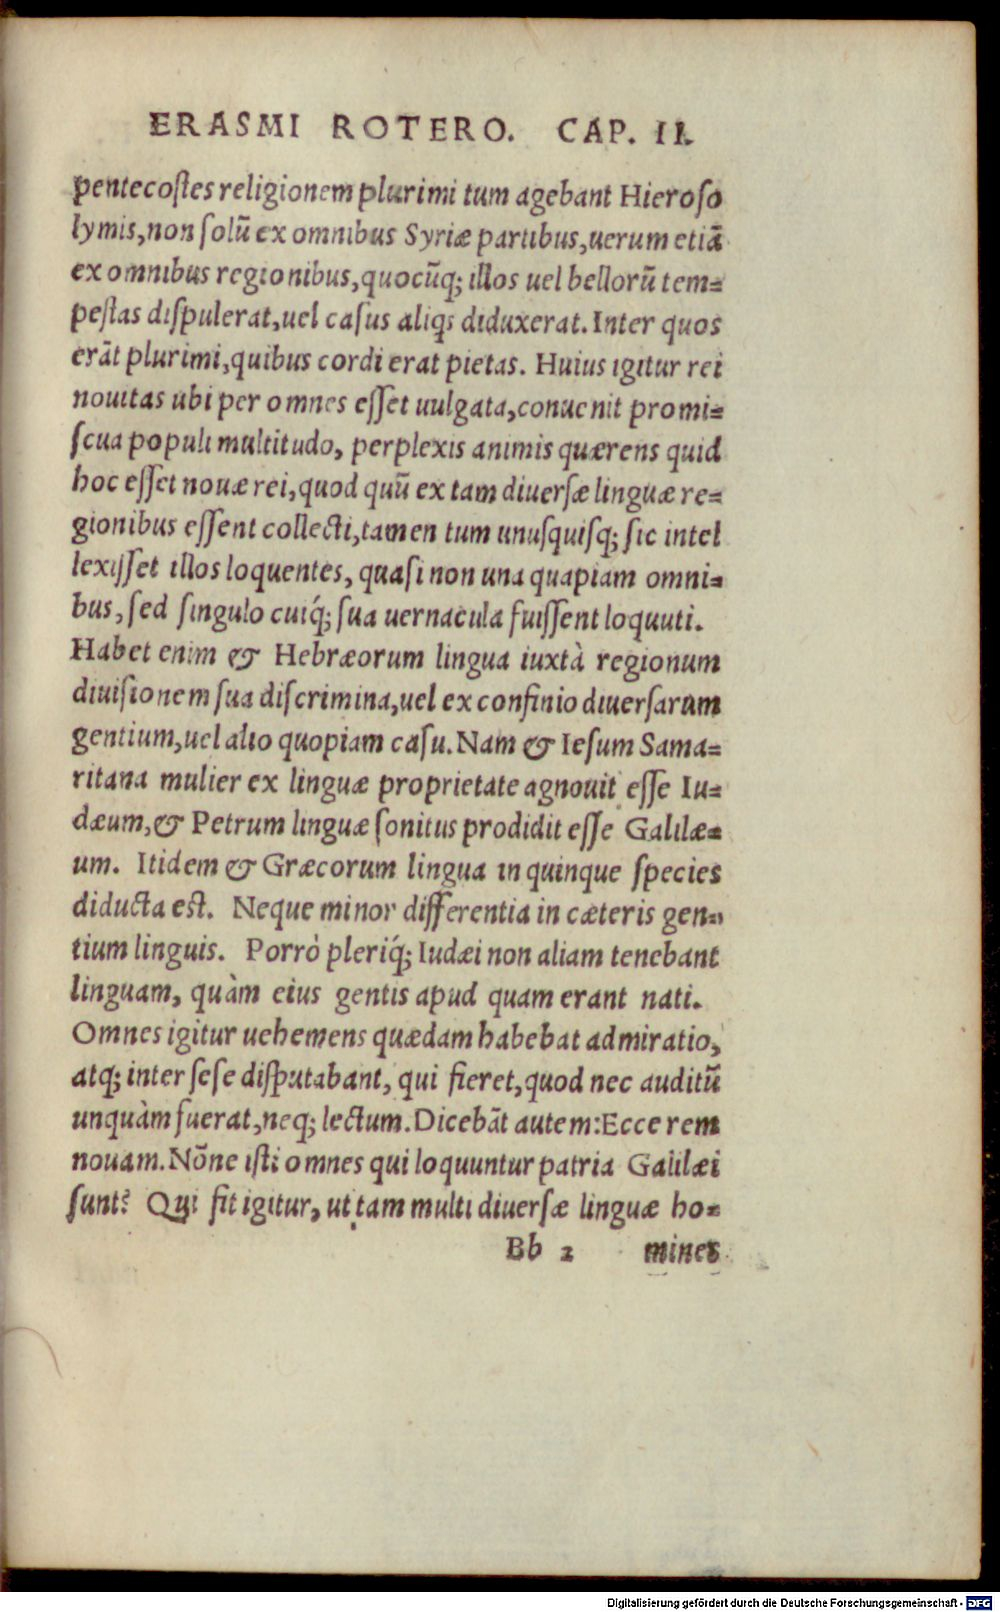 ERASMI ROTERO. CAP. II.
pentecoſtes religionem plurimi tum agebant Hieroſo
lymis, non ſolũ ex omnibus Syriæ partibus, uerum etiã
ex omnibus regionibus, quocũq; illos uel bellorũ tem=
peſtas diſpulerat, uel caſus aliqs diduxerat. Inter quos
erãt plurimi, quibus cordi erat pietas. Huius igitur rei
nouitas ubi per omnes eſſet uulgata, conuenit promi=
ſcua populi multitudo, perplexis animis quærens quid
hoc eſſet nouæ rei, quod quũ ex tam diuerſæ linguæ re=
gionibus eſſent collecti, tamen tum unuſquiſq; ſic intel
lexiſſet illos loquentes, quaſi non una quapiam omni=
bus, ſed ſingulo cuiq́; ſua uernacula fuiſſent loquuti.
Habet enim & Hebræorum lingua iuxtà regionum
diuiſionem ſua diſcrimina, uel ex confinio diuerſarum
gentium, uel alio quopiam caſu. Nam & Ieſum Sama=
ritana mulier ex linguæ proprietate agnouit eſſe Iu=
dæum, & Petrum linguæ ſonitus prodidit eſſe Galilæ=
um. Itidem & Græcorum lingua in quinque ſpecies
diducta eſt. Neque minor differentia in cæteris gen=
tium linguis. Porrò pleriq́; Iudæi non aliam tenebant
linguam, quàm eius gentis apud quam erant nati.
Omnes igitur uehemens quædam habebat admiratio,
atq; inter ſeſe diſputabant, qui fieret, quod nec auditũ
unquàm fuerat, neq; lectum. Dicebãt autem: Ecce rem
nouam. Nõne iſti omnes qui loquuntur patria Galilæi
ſunt? Qui fit igitur, ut tam multi diuerſæ linguæ ho=
Bb 2 mines
Digitalisierung gefördert durch die Deutsche Forschungsgemeinschaft - DFG